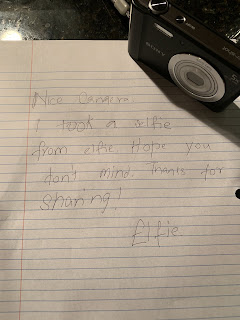 SONY
Nice Camera
I took a elfie
from elfie. Hope you
don't mind. Thanks for
sharing!
Elfie